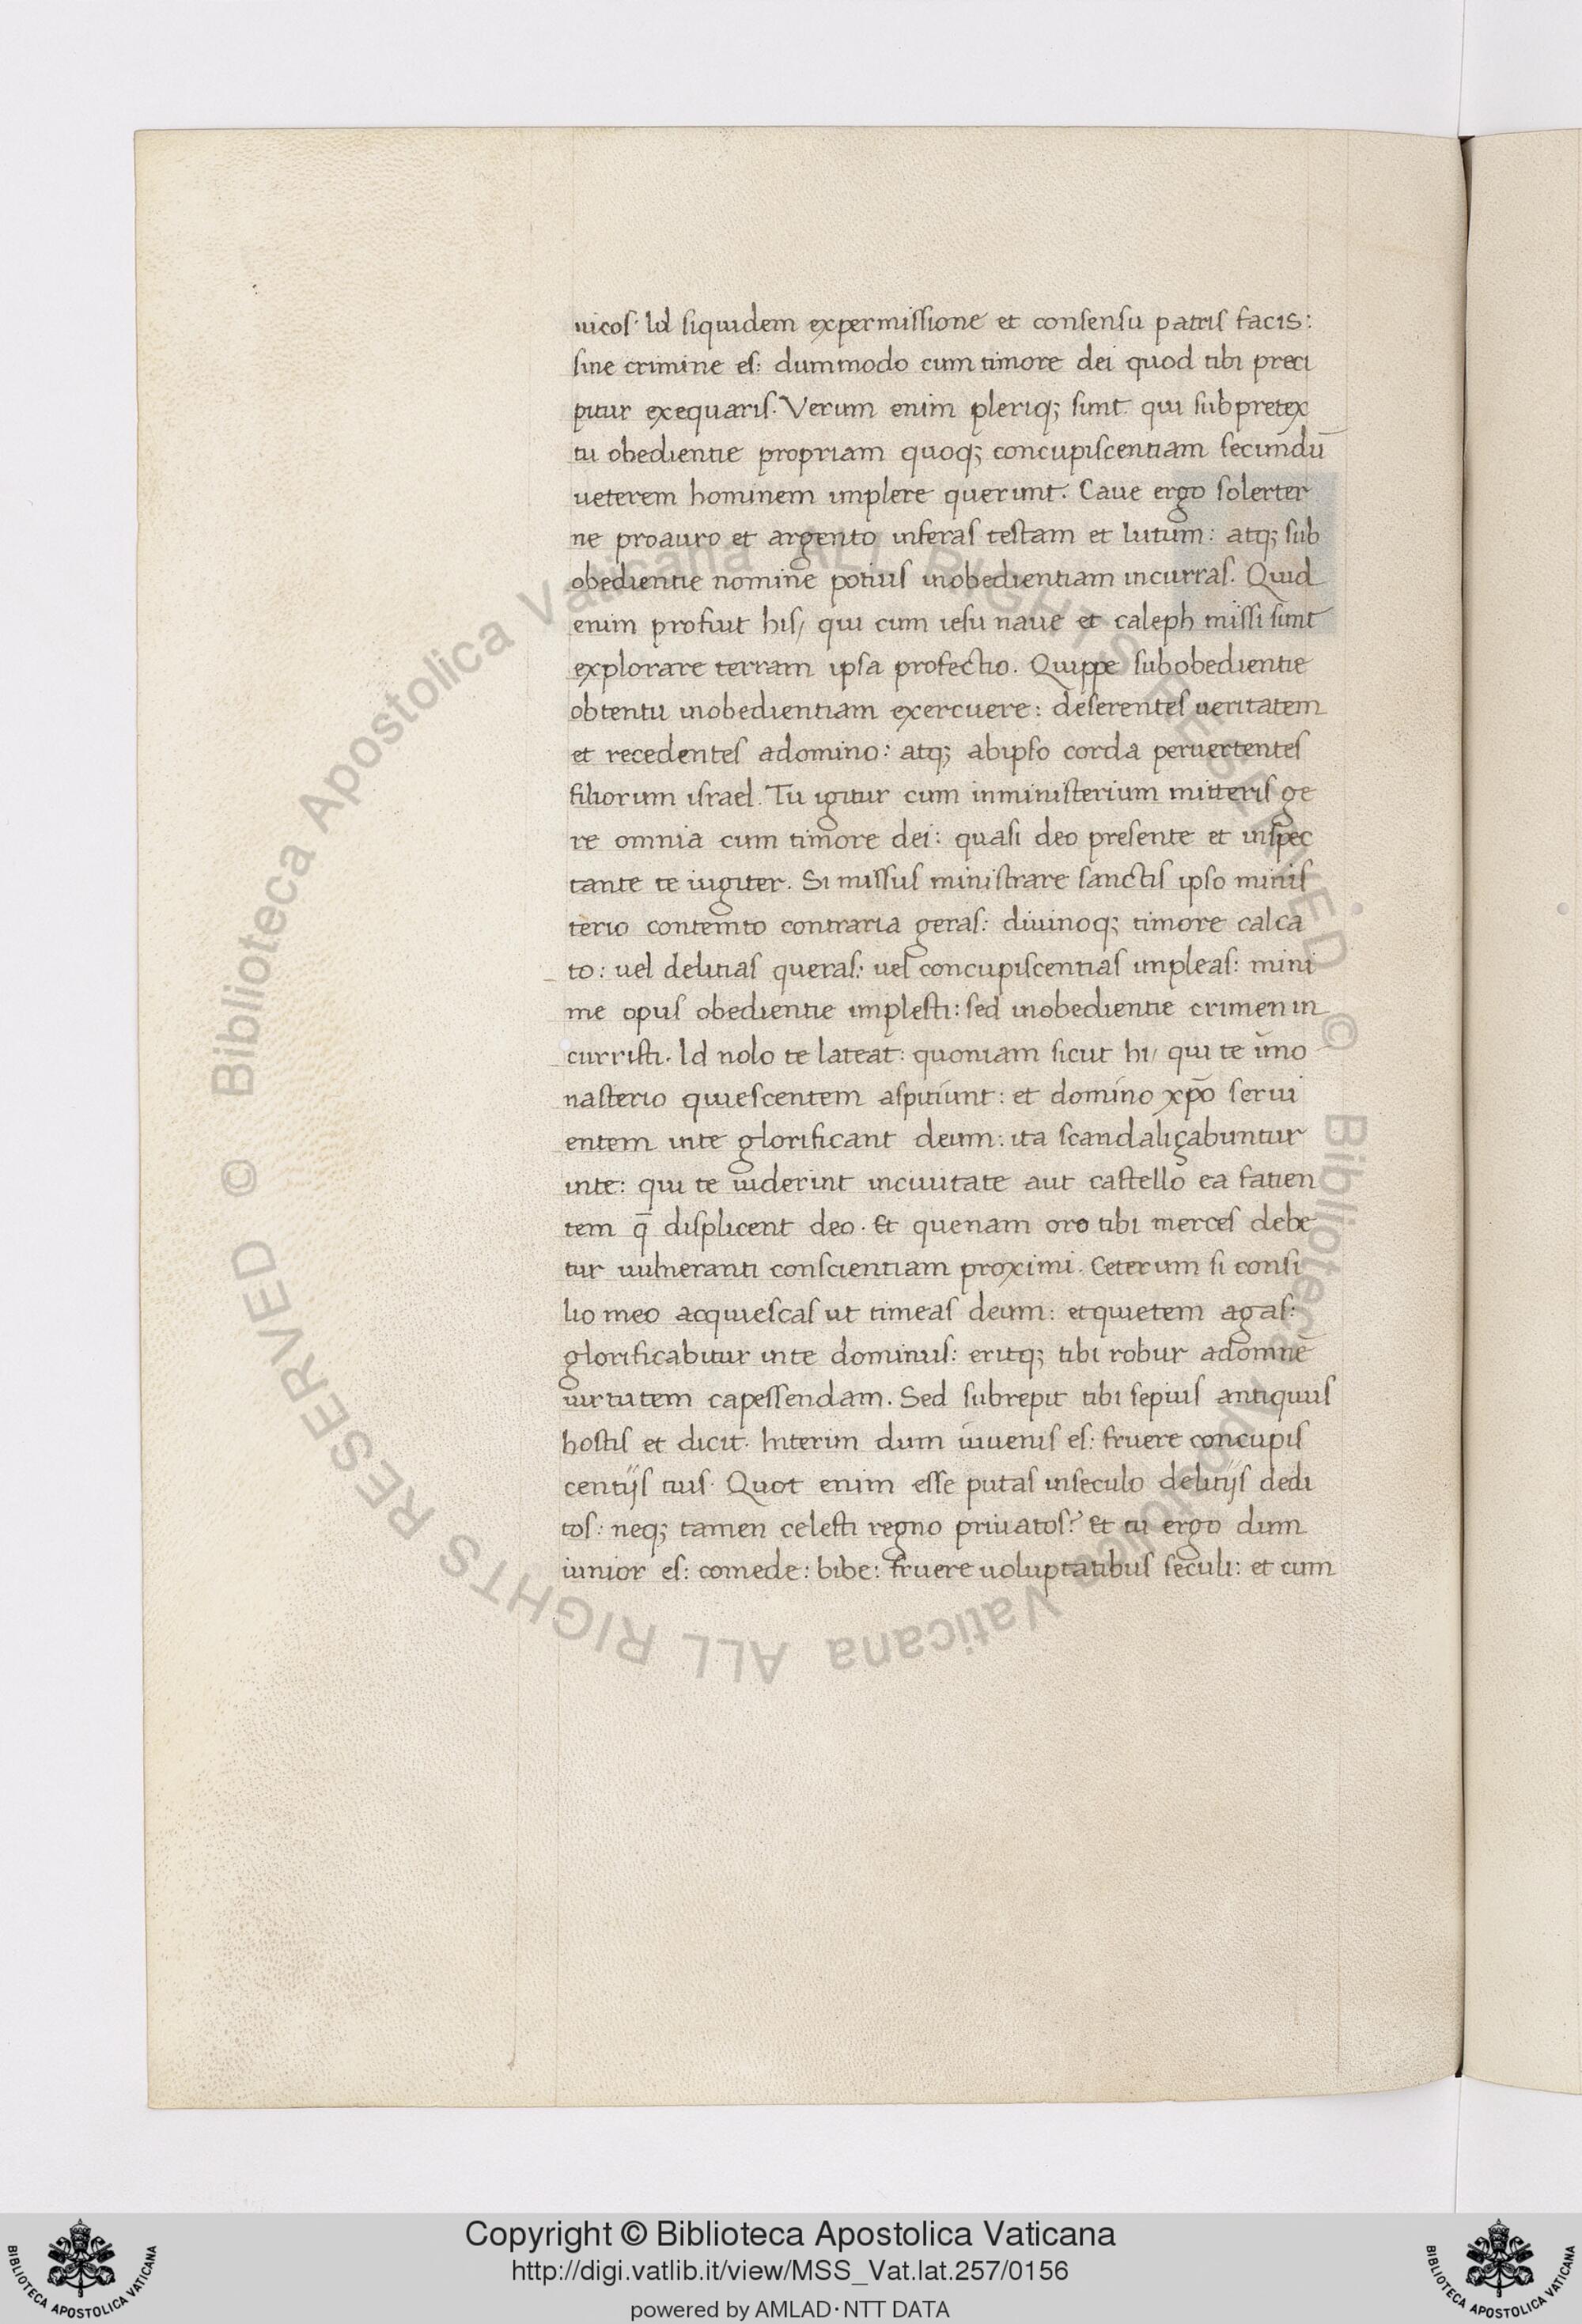 uicos. Id siquidem expermissione et consensu patris facis:
sine crimine es: dummodo cum timore dei quod tibi preci
pitur exequaris. Verum enim pleriq; sunt qui subpretex
tu obedientie propriam quoq; concupiscentiam secundū
ueterem hominem implere querunt. Caue ergo solerter
ne proauro et argento inferas testam et lutum: atq; sub
obedientie nomine potius inobedientiam incurras. Quid
enim profuit his/ qui cum iesu naue et caleph missi sunt
explorare terram ipsa profectio. Quippe subobedientie
obtentu inobedientiam exercuere: deserentes ueritatem
et recedentes adomino: atq; abipso corda peruertentes
filiorum israel. Tu igitur cum inministerium mitteris ge
re omnia cum timore dei: quasi deo presente et inspec
tante te iugiter. Si missus ministrare sanctis ipso minis
terio contemto contraria geras: diuinoq; timore calca
to: uel delitias queras: uel concupiscentias impleas: mini
me opus obedientie implesti: sed inobedientie crimen in
curristi. Id nolo te lateat: quoniam sicut hi/ qui te īmo
nasterio quiescentem aspitiunt: et domino xp̄o serui
entem inte glorificant deum: ita scandaliçabuntur
inte: qui te uiderint inciuitate aut castello ea fatien
tem q̄ displicent deo. Et quenam oro tibi merces debe
tur uulneranti conscientiam proximi. Ceterum si consi
lio meo acquiescas ut timeas deum: et quietem agas:
glorificabitur inte dominus: eritq; tibi robur adomnē
uirtutem capessendam. Sed subrepit tibi sepius antiquus
hostis et dicit. Interim dum iuuenis es: fruere concupis
centijs tuis. Quot enim esse putas inseculo delitijs dedi
tos: neq; tamen celesti regno priuatos? Et tu ergo dum
iunior es: comede: bibe: fruere uoluptatibus seculi: et cum
© Biblioteca Apostolica Vaticana ALL RIGHTS RESERVED © Biblioteca Apostolica Vaticana ALL RIGHTS RESERVED
Copyright © Biblioteca Apostolica Vaticana
http://digi.vatlib.it/view/MSS_Vat.lat.257/0156
powered by AMLAD·NTT DATA
BIBLIOTECA APOSTOLICA VATICANA
BIBLIOTECA APOSTOLICA VATICANA